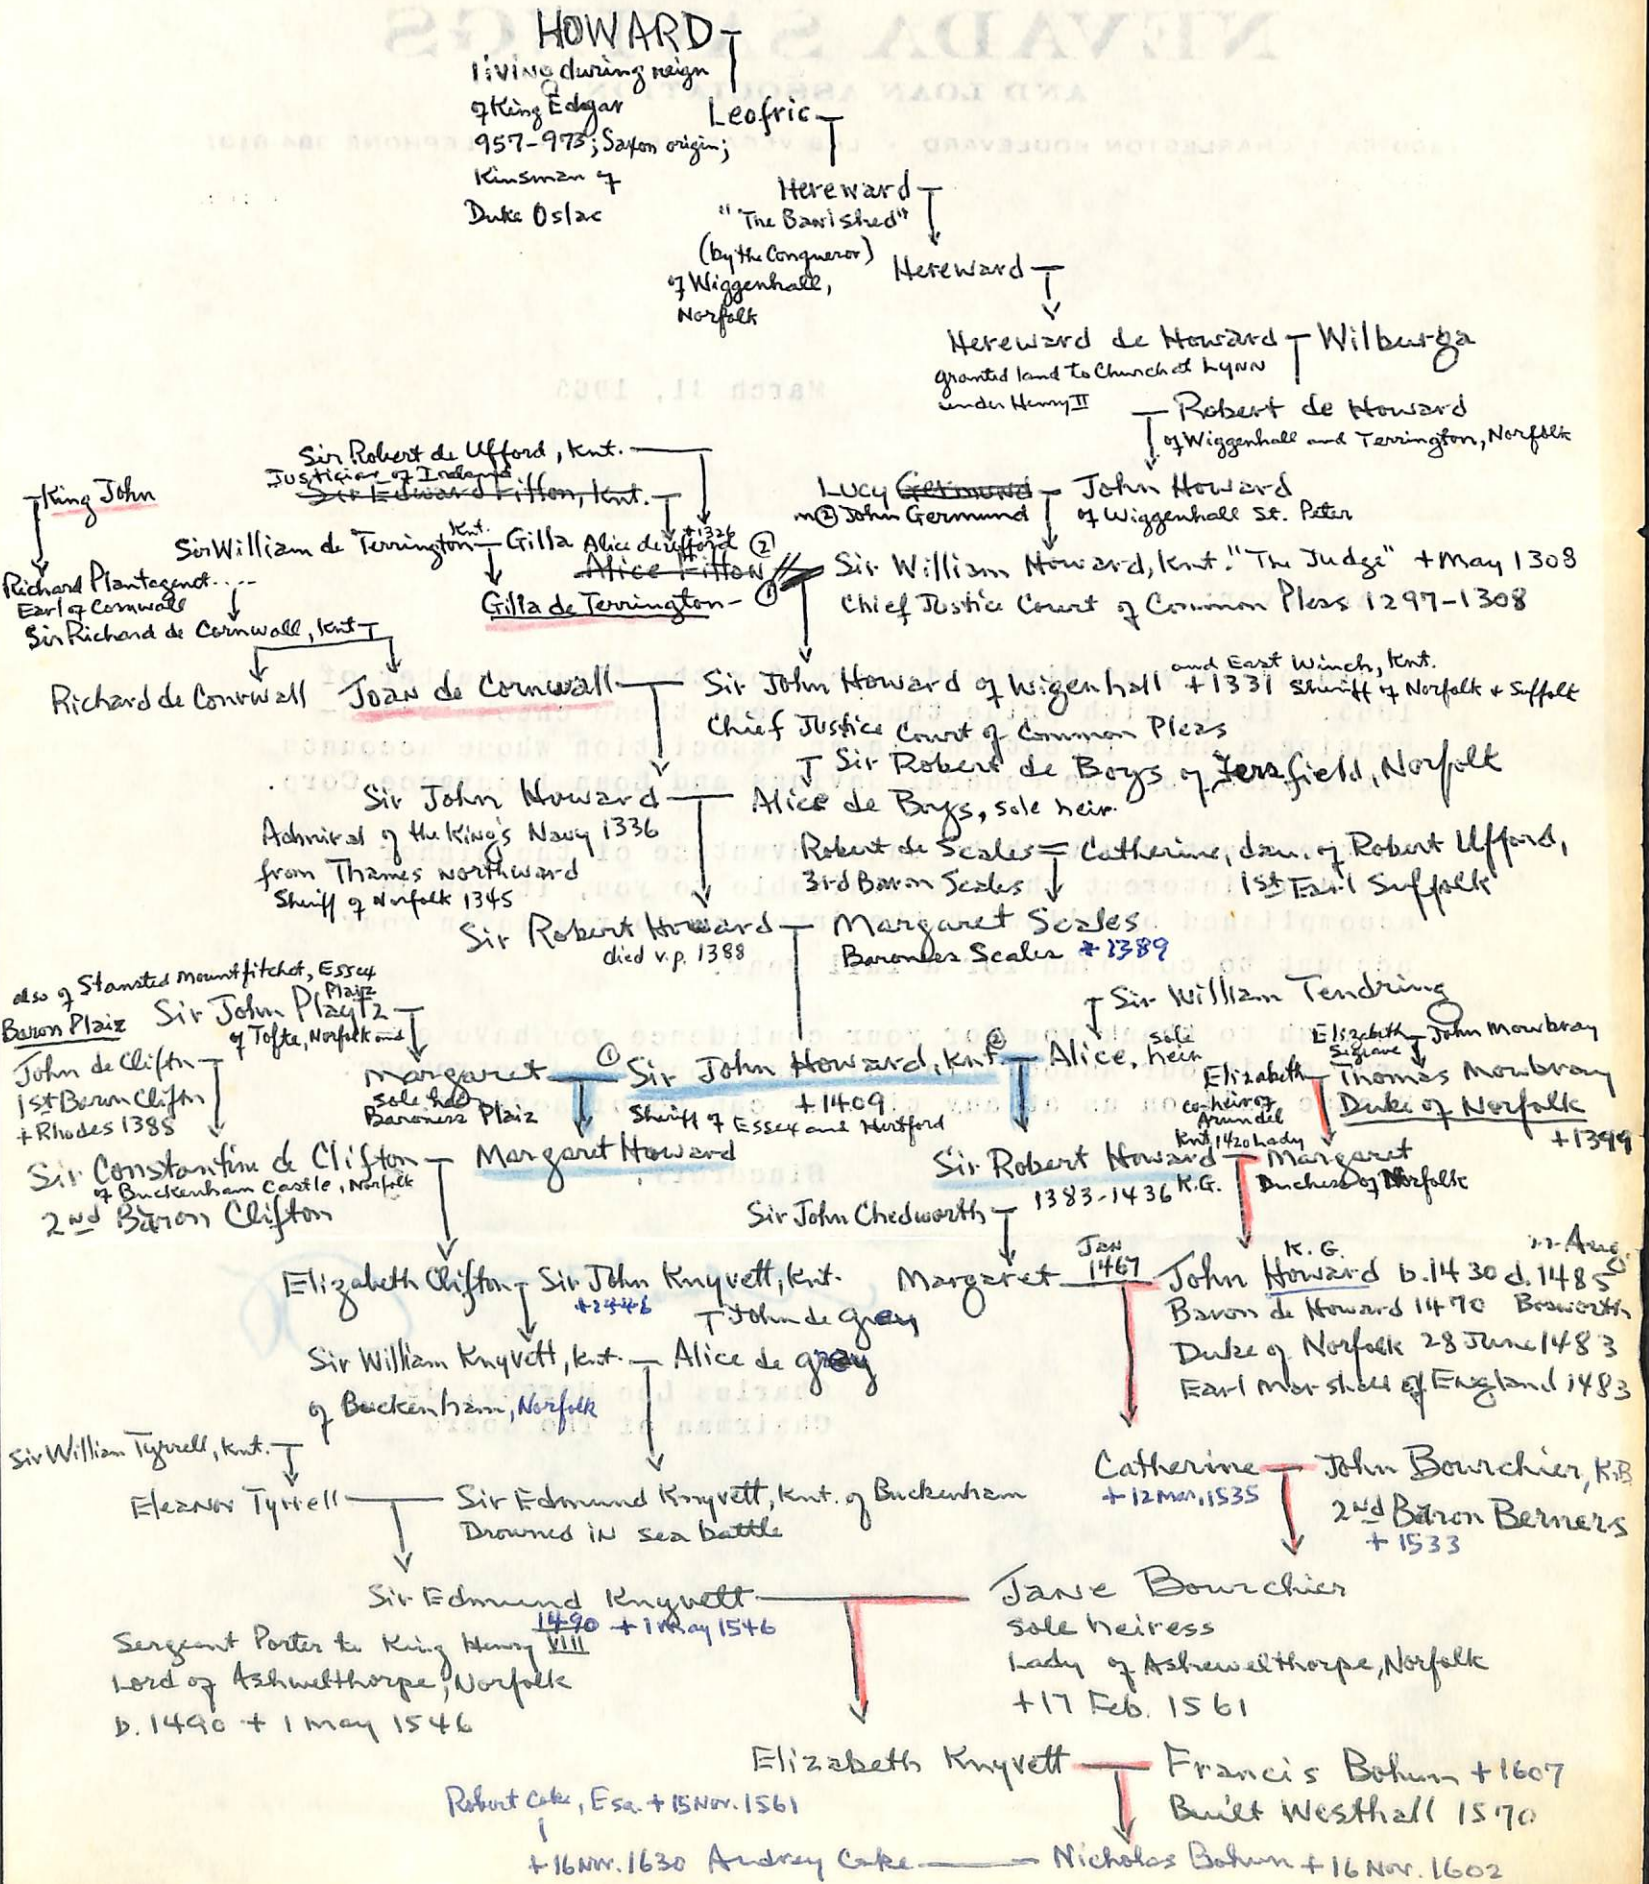 HOWARD
living during reign
of King Edgar
957-975; Saxon origin;
Kinsman of
Duke Oslac
Leofric
Hereward
"The Banished"
(by the Conqueror)
of Wiggenhall,
Norfolk
Hereward
Hereward de Howard - Wilburga
granted land to Church at Lynn
under Henry II
Robert de Howard
of Wiggenhall and Terrington, Norfolk
Sir Robert de Ufford, Knt.
Justiciar of Ireland
Sir Edward Fitton, Knt.
King John
Lucy Germund - John Howard
m② John Germund
of Wiggenhall St. Peter
Sir William de Terrington Knt. - Gilla
Alice de Ufford +1326 ②
Alice Fitton
Richard Plantagenet....
Earl of Cornwall
Gilla de Terrington - ①
Sir William Howard, Knt. "The Judge" + May 1308
Chief Justice Court of Common Pleas 1297-1308
Sir Richard de Cornwall, Knt
Richard de Cornwall
Joan de Cornwall
Sir John Howard of Wigenhall and East Winch, Knt.
+1331 Sheriff of Norfolk & Suffolk
Chief Justice Court of Common Pleas
Sir Robert de Boys of Fersfield, Norfolk
Sir John Howard - Alice de Boys, sole heir.
Admiral of the King's Navy 1336
from Thames northward
Sheriff of Norfolk 1345
Robert de Scales = Catherine, dau. of Robert Ufford,
3rd Baron Scales
1st Earl Suffolk
Sir Robert Howard - Margaret Scales
died v.p. 1388
Baroness Scales +1389
also of Stansted Mountfitchet, Essex
Baron Plaiz
Sir John Playtz
Plaiz
of Tofte, Norfolk and
Sir William Tendring
John de Clifton
1st Baron Clifton
+Rhodes 1388
Margaret
sole heir
Baroness Plaiz
① Sir John Howard, Knt ②
+1409
Sheriff of Essex and Hertford
Alice, sole heir
Elizabeth Segrave - John Mowbray
Elizabeth
co-heir of
Arundel
Thomas Mowbray
Duke of Norfolk
+1399
Knt 1420 Lady
Sir Constantine de Clifton
of Buckenham Castle, Norfolk
2nd Baron Clifton
Margaret Howard
Sir Robert Howard - Margaret
1383-1436 K.G.
Duchess of Norfolk
Sir John Chedworth
Elizabeth Clifton - Sir John Knyvett, Knt.
+1446
Margaret
Jan
1467
John Howard K.G. b.1430 d.1485
22 Aug.
Baron de Howard 1470 Bosworth
Duke of Norfolk 28 June 1483
Earl Marshall of England 1483
John de Grey
Sir William Knyvett, Knt. - Alice de Grey
of Buckenham, Norfolk
Sir William Tyrrell, Knt.
Catherine - John Bourchier, K.B
+ 12 Mar, 1535
2nd Baron Berners
+ 1533
Eleanor Tyrrell
Sir Edmund Knyvett, Knt. of Buckenham
Drowned in sea battle
Sir Edmund Knyvett
1490 + 1 May 1546
Sergeant Porter to King Henry VIII
Lord of Ashwelthorpe, Norfolk
b. 1490 + 1 May 1546
Jane Bourchier
sole heiress
Lady of Ashewelthorpe, Norfolk
+17 Feb. 1561
Elizabeth Knyvett - Francis Bohun +1607
Built Westhall 1570
Robert Coke, Esq. + 15 Nov. 1561
+ 16 Nov. 1630 Audrey Coke - Nicholas Bohun + 16 Nov. 1602